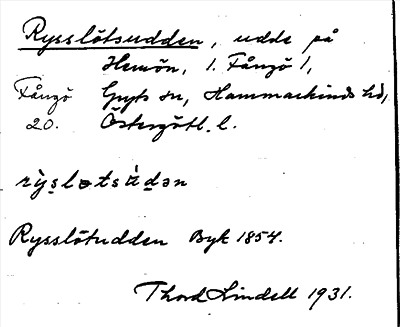 Rysslötsudden, udde på
Hemön, 1. Fångö 1,
Fångö Gryts sn, Hammarkinds hd,
20. Östergötl. l.
rỳs̱lɵtsu̇̀dən
Rysslötudden Byk 1854.
Thord Lindell 1931.